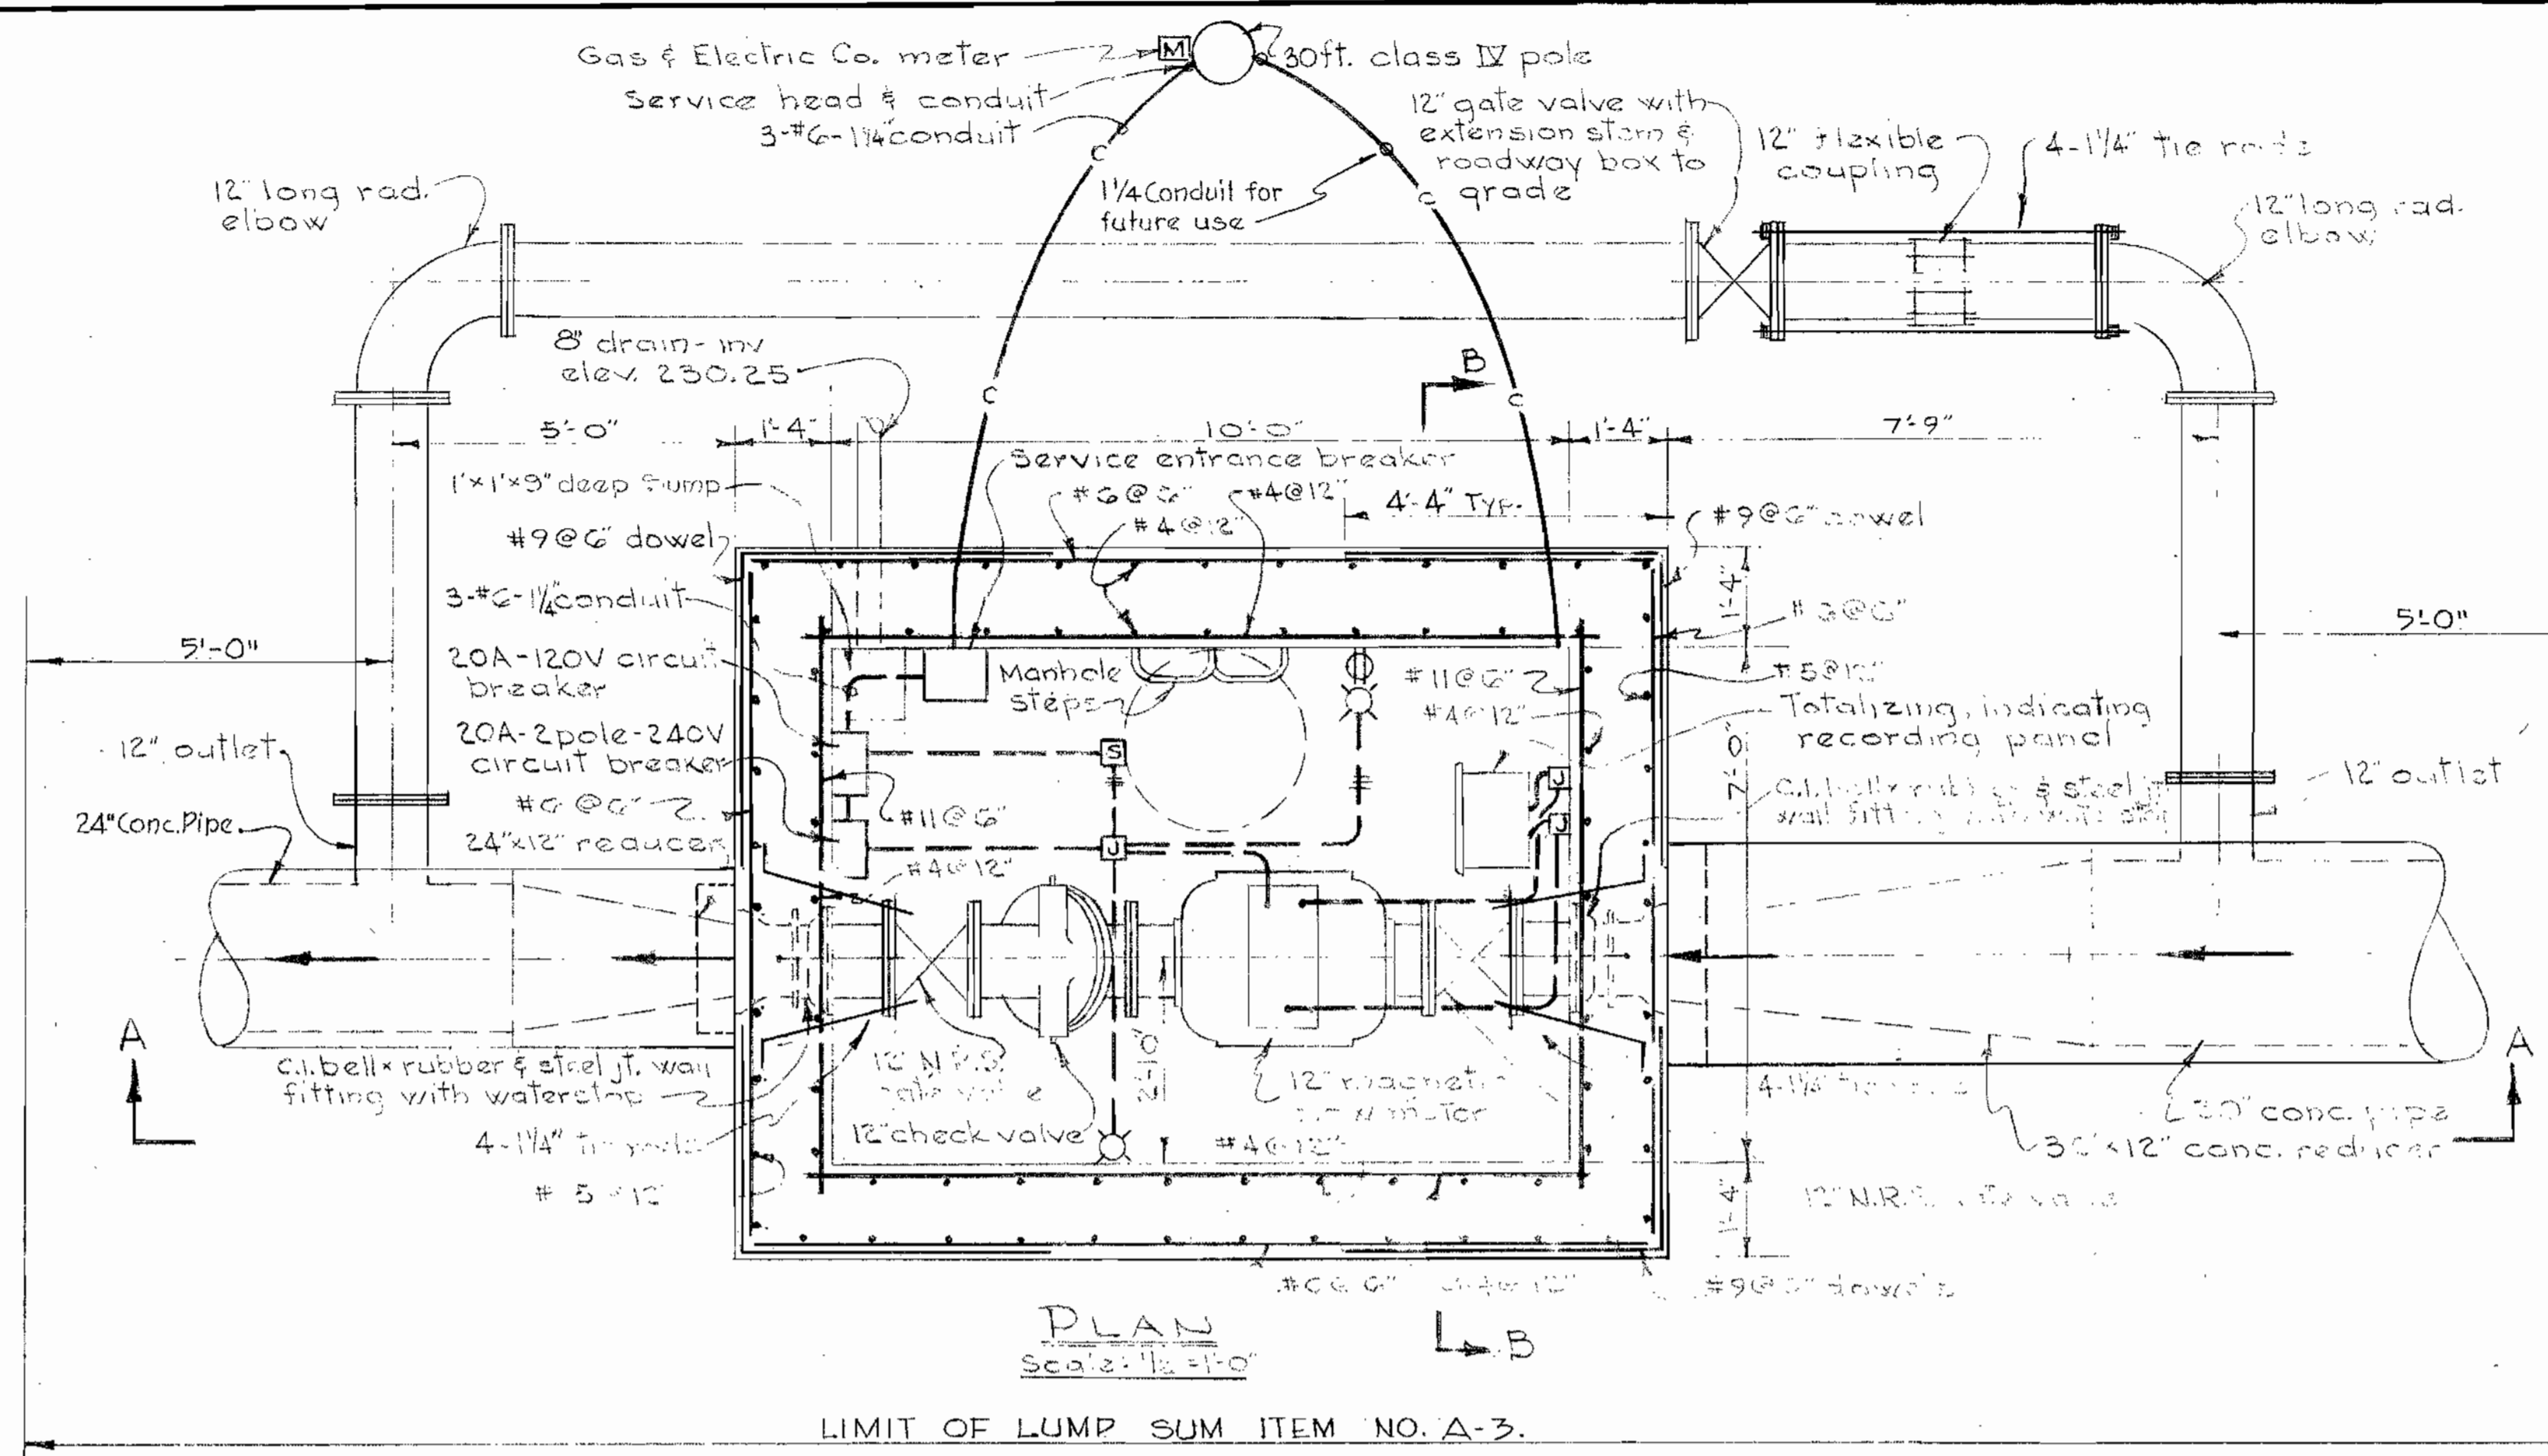 Gas & Electric Co. meter
M
30ft. class IV pole
Service head & conduit
3-#6-1¼" conduit
C
12" gate valve with
extension stem &
roadway box to
grade
12" flexible
coupling
4-1¼" tie rods
12" long rad.
elbow
1¼ Conduit for
future use
C
12" long rad.
elbow
8" drain-inv
elev. 230.25
C
B
C
5'-0"
1'-4"
D
10'-0"
1'-4"
7'-9"
Service entrance breaker
1'x1'x9" deep sump
#6@6"
#4@12"
4'-4" Typ.
#4@12"
#9@6" dowel
#9@6" dowel
3-#6-1¼" conduit
1'-4"
5'-0"
5'-0"
20A-120V circuit
breaker
Manhole
steps
#11@6"
#4@12"
Totalizing, indicating
recording panel
20A-2pole-240V
circuit breaker
S
J
7'-0"
12" outlet
#6@6"
#11@6"
J
12" outlet
24" Conc. Pipe
24"x12" reducer
J
#4@12"
A
A
C.I. bell x rubber & steel jt. wall
fitting with waterstop
12" N.R.S.
gate valve
2'-10"
12" magnetic
4-1¼" tie rods
4-1¼" tie rods
12" check valve
#4@12"
conc. pipe
x12" conc. reducer
12" N.R.S. gate valve
1'-4"
#9@6" dowels
PLAN
Scale: ½"=1'-0"
B
LIMIT OF LUMP SUM ITEM NO. A-3.